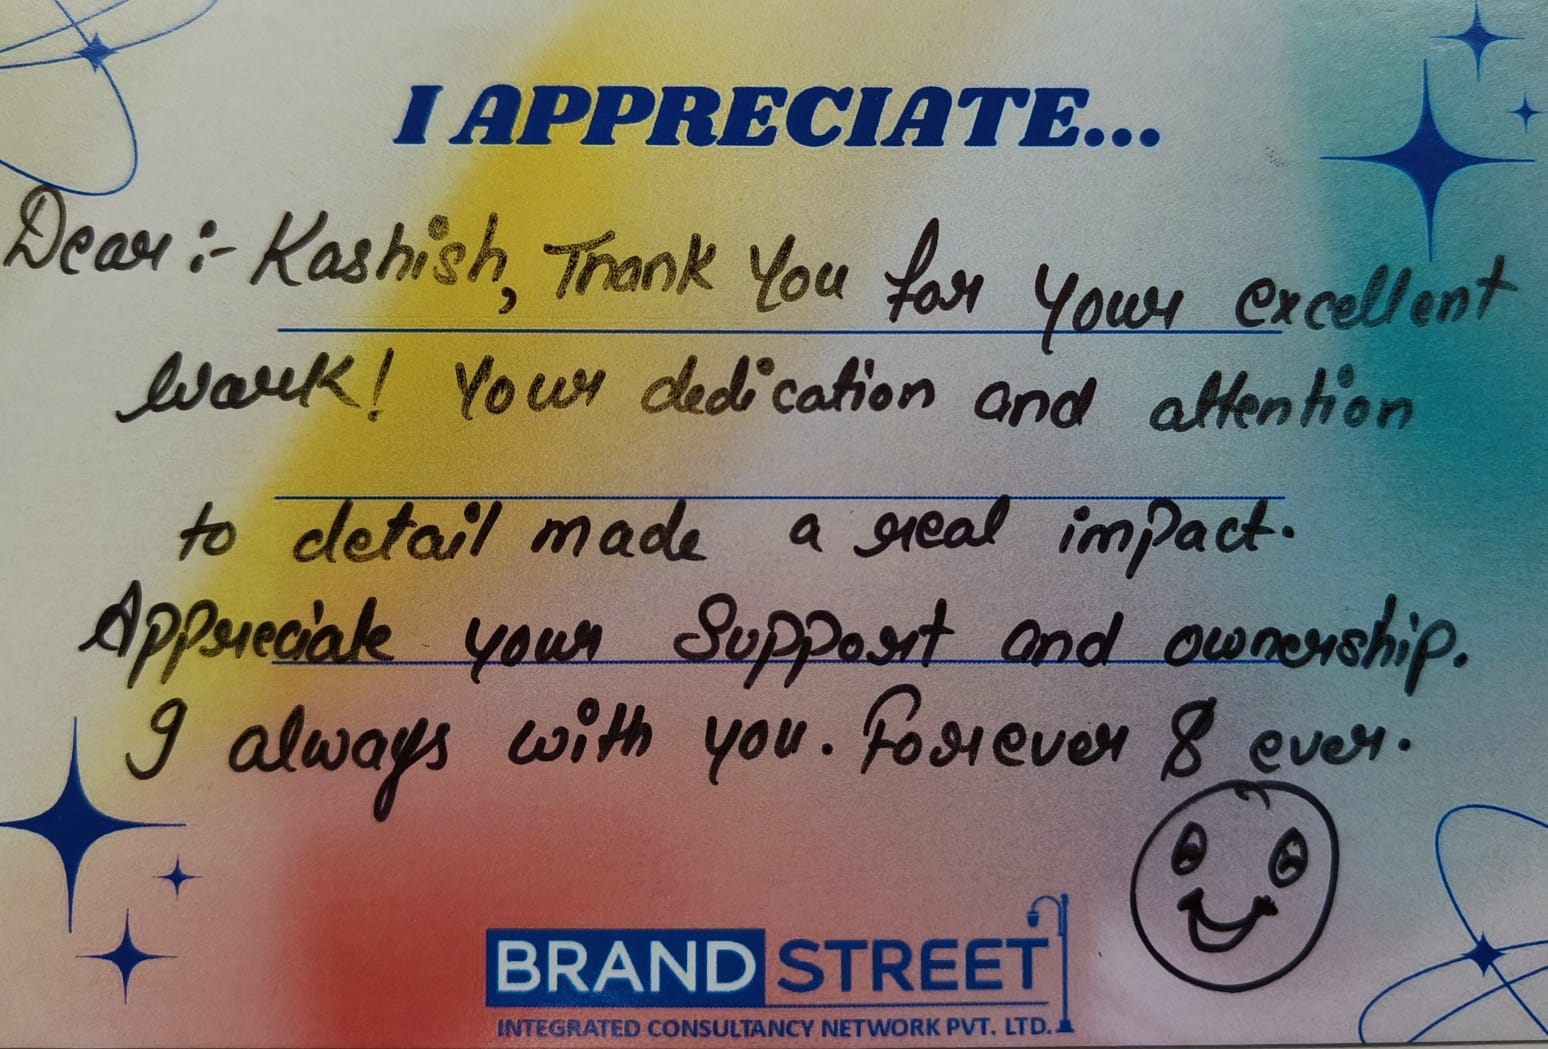 I APPRECIATE...
Dear:- Kashish, Thank You for Your excellent
work! Your dedication and attention
to detail made a real impact.
Appreciate your Support and ownership.
I always with you. Forever & ever.
BRAND STREET
INTEGRATED CONSULTANCY NETWORK PVT. LTD.